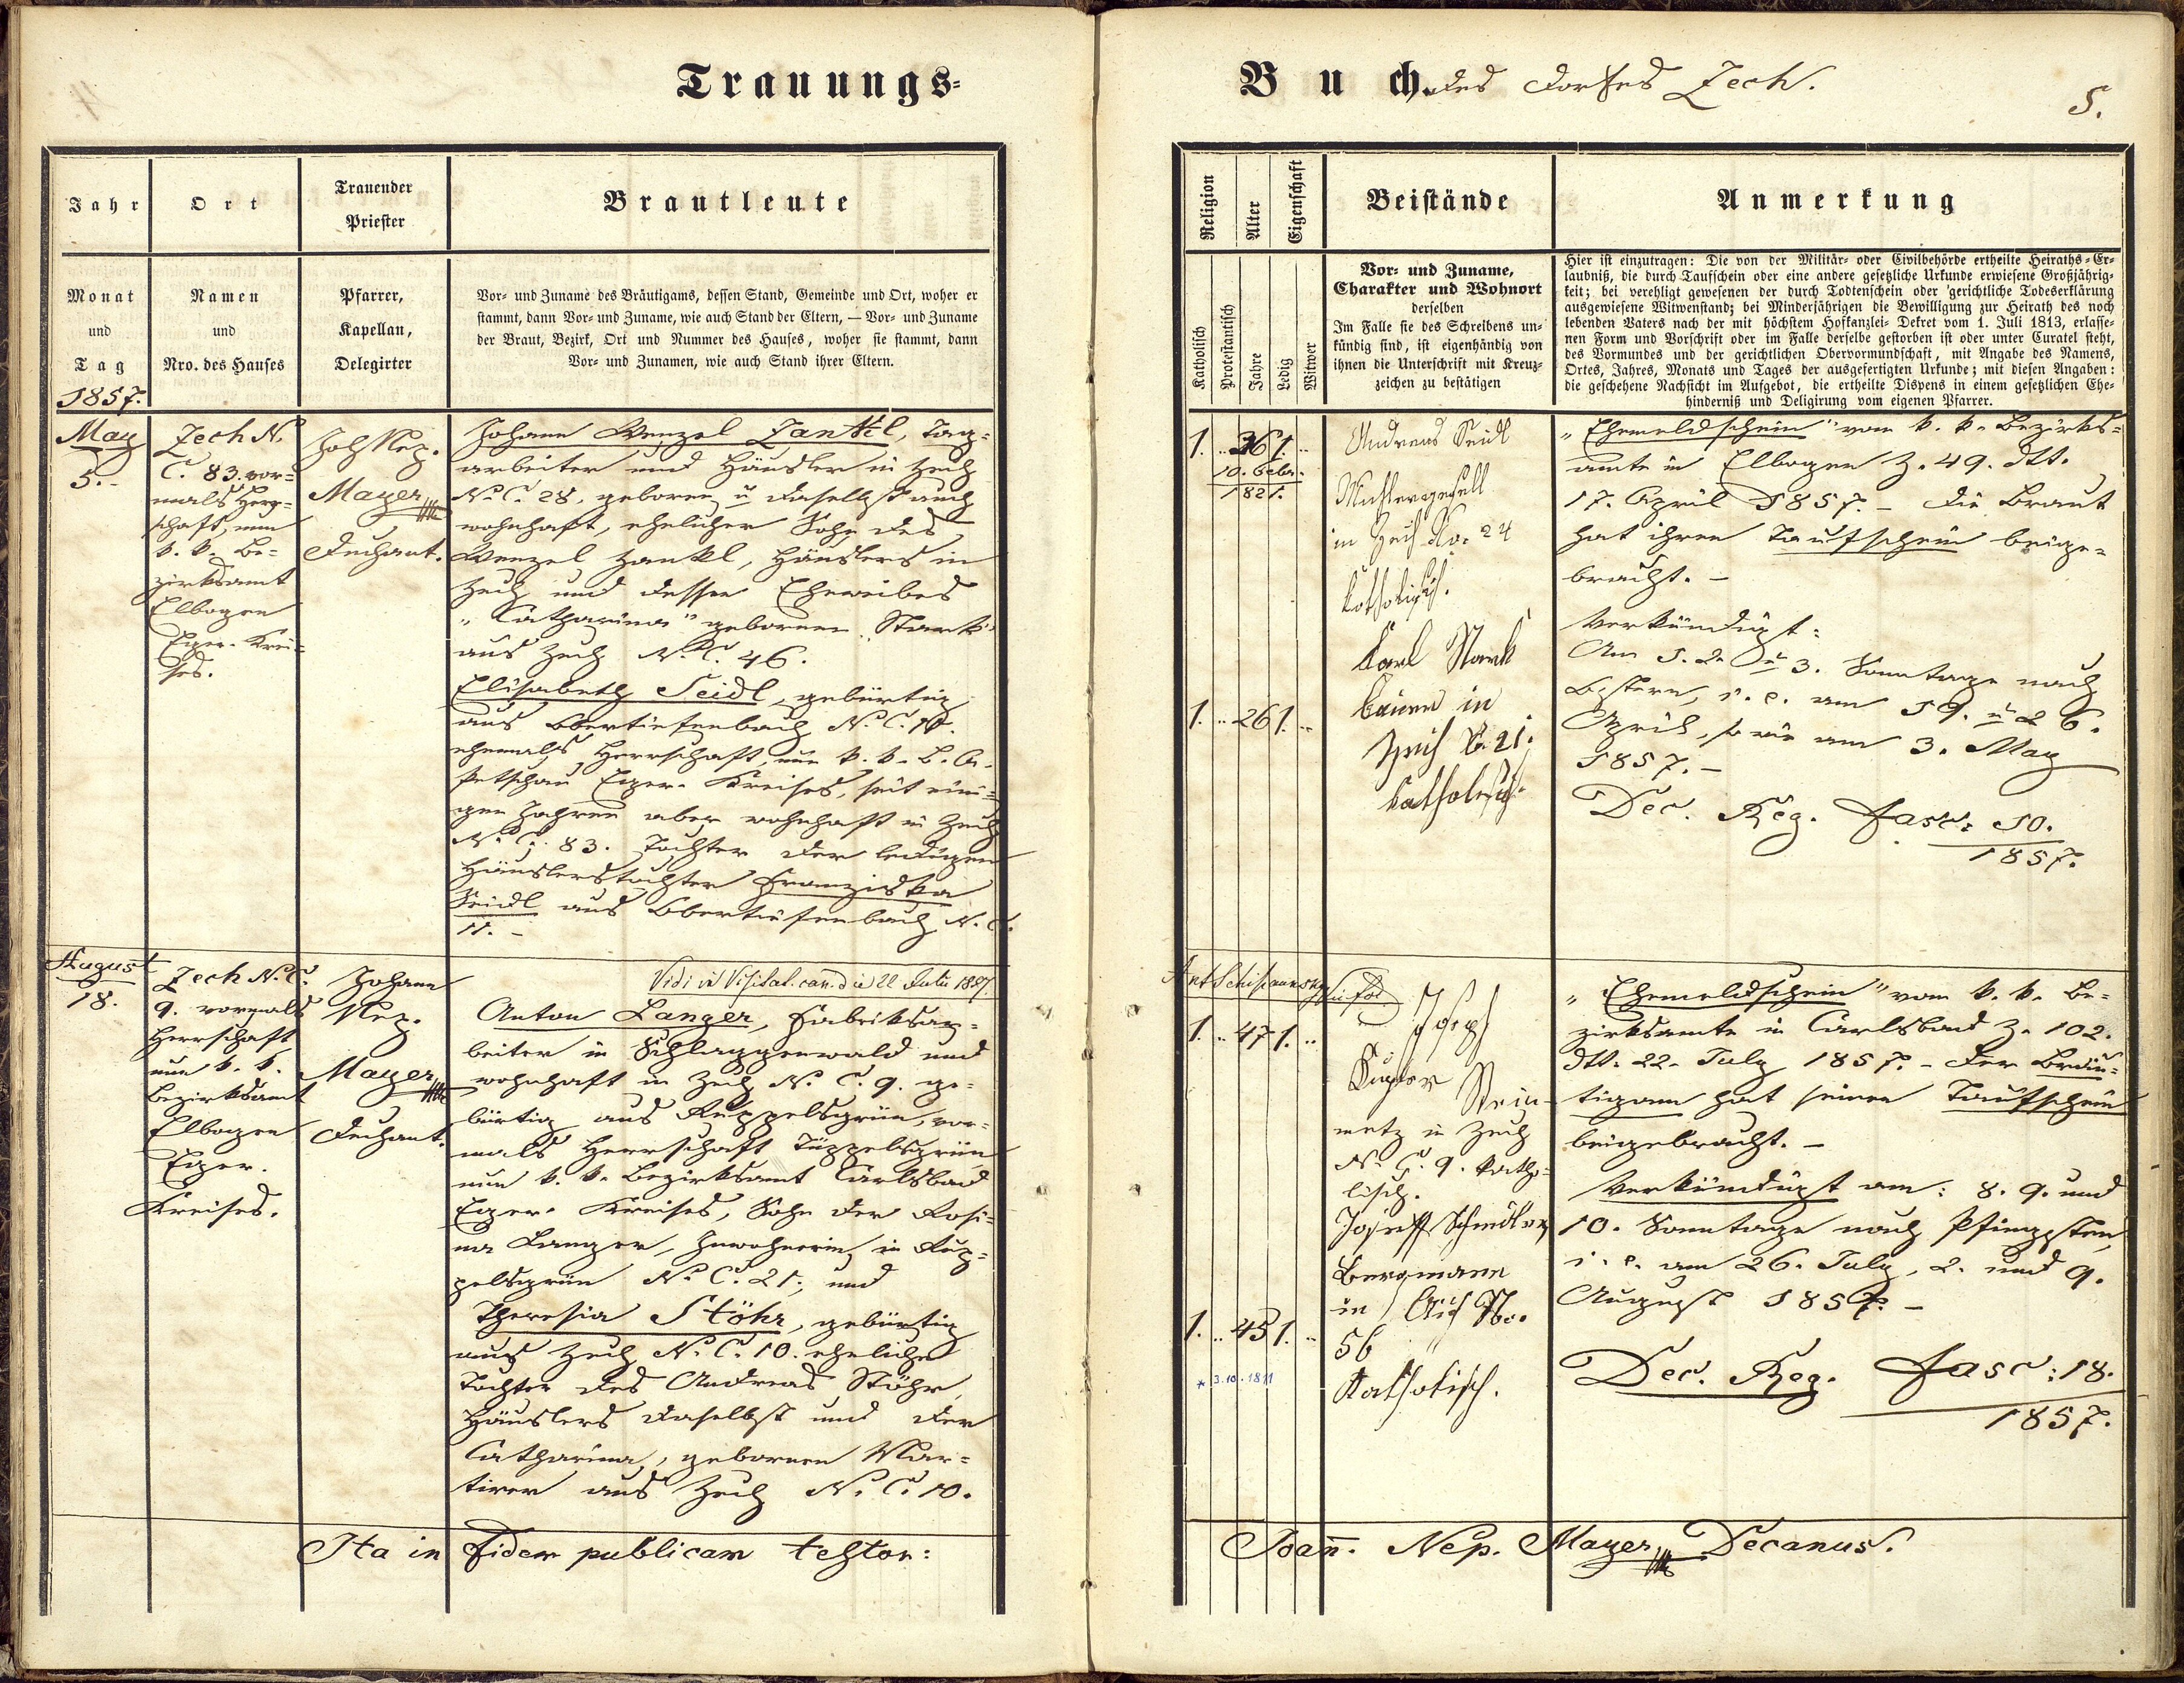 Trauungs-
Jahr
Ort
Trauender
Priester
Brautleute
Monat
und
Tag
1857.
Namen
und
Nro. des Hauses
Pfarrer,
Kapellan,
Delegirter
Vor- und Zuname des Bräutigams, dessen Stand, Gemeinde und Ort, woher er
stammt, dann Vor- und Zuname, wie auch Stand der Eltern, — Vor- und Zuname
der Braut, Bezirk, Ort und Nummer des Hauses, woher sie stammt, dann
Vor- und Zunamen, wie auch Stand ihrer Eltern.
May
5.-
Zech N.
C. 83. vor-
mals Herr-
schaft, nun
k. k. Be-
zirksamt
Elbogen
Eger. Krei-
ses.
Joh Nep.
Mayer
Dechant.
Johann Wenzel Zankl, Tag-
arbeiter und Häusler in Zech
N. C. 28. geboren u daselbst auch
wohnhaft, ehelicher Sohn des
Wenzel Zankl, Häuslers in
Zech und dessen Eheweibes
"Catharina" gebornen Stark
aus Zech N. C. 46.
Elisabeth Seidl, gebürtig
aus Obertiefenbach N. C.
ehemals Herrschaft, nun k. k. B. A.
Petschau Eger. Kreises, seit eini-
gen Jahren aber wohnhaft in Zech
N. C. 83. Tochter der ledigen
Häuslerstochter Franziska
Seidl aus Obertiefenbach N. C.
11. -
August
18.
Zech N. C.
9. vormals
Herrschaft
nun k. k.
Bezirksamt
Elbogen
Eger.
Kreises.
Johann
Nep.
Mayer
Dechant.
Vidi in Visitat. can. die 22 Julii 1887.
Anton Langer, Fabriksar-
beiter in Schlaggenwald und
wohnhaft in Zech N. C. 9. ge-
bürtig aus Ruppelsgrün, vor-
mals Herrschaft Tüppelsgrün
nun k. k. Bezirksamt Carlsbad
Eger. Kreises, Sohn der Rosi-
na Langer, Inwohnerin in Rup-
pelsgrün N. C. 21; und
Theresia Stöhr, gebürtig
aus Zech N. C. 10. eheliche
Tochter des Andreas Stöhr,
Häuslers daselbst und der
Catharina, gebornen Mar-
tirer aus Zech N. C. 10.
Ita in fidem publicam testor:
Buch des Dorfes Zech.
5.
Religion
Alter
Eigenschaft
Beistände
Anmerkung
Katholisch
Protestantisch
Jahre
Ledig
Witwer
Vor- und Zuname,
Charakter und Wohnort
derselben
Im Falle sie des Schreibens un-
kündig sind, ist eigenhändig von
ihnen die Unterschrift mit Kreuz-
zeichen zu bestätigen
Hier ist einzutragen: Die von der Militär- oder Civilbehörde ertheilte Heiraths-Er-
laubniß, die durch Taufschein oder eine andere gesetzliche Urkunde erwiesene Großjährig-
keit; bei verehligt gewesenen der durch Todtenschein oder gerichtliche Todeserklärung
ausgewiesene Witwenstand; bei Minderjährigen die Bewilligung zur Heirath des noch
lebenden Vaters nach der mit höchstem Hofkanzlei- Dekret vom 1. Juli 1813, erlasse-
nen Form und Vorschrift oder im Falle derselbe gestorben ist oder unter Curatel steht,
des Vormundes und der gerichtlichen Obervormundschaft, mit Angabe des Namens,
Ortes, Jahres, Monats und Tages der ausgefertigten Urkunde; mit diesen Angaben:
die geschehene Nachsicht im Aufgebot, die ertheilte Dispens in einem gesetzlichen Ehe-
hinderniß und Deligirung vom eigenen Pfarrer.
1. .. 36 1. ..
10. Febr.
1821.
1. .. 26 1. ..
Andreas Seidl
in Zech No. 24
katholisch.
Karl Stark
Bauer in
Zech N. 21.
katholisch.
"Ehemeldschein" vom k. k. Bezirks-
amte in Elbogen Z. 49. dtt.
17. April 1857. - Die Braut
hat ihren Taufschein beige-
bracht. -
Verkündigt:
Am 1. 2. u 3. Sonntage nach
Ostern, i. e. am 19. u 26.
April, so wie am 3. May
1857. -
Dec. Reg. Fasc: 10.
1857.
1. .. 47 1. ..
1. .. 45 1. ..
* 3.10.1811
Joseph
Stein-
metz in Zech
N. C. 9. katho-
lisch.
Joseph Schindler
Bergmann
in No.
56
Katholisch.
"Ehemeldschein" vom k. k. Be-
zirksamte in Carlsbad Z. 102.
dtt. 22. July 1857. - Der Bräu-
tigam hat seinen Taufschein
beigebracht. -
Verkündigt am: 8. 9. und
10. Sonntage nach Pfingsten,
i. e. am 26. July, 2. und 9.
August 1857. -
Dec. Reg. Fasc: 18.
1857.
Joan. Nep. Mayer Decanus.